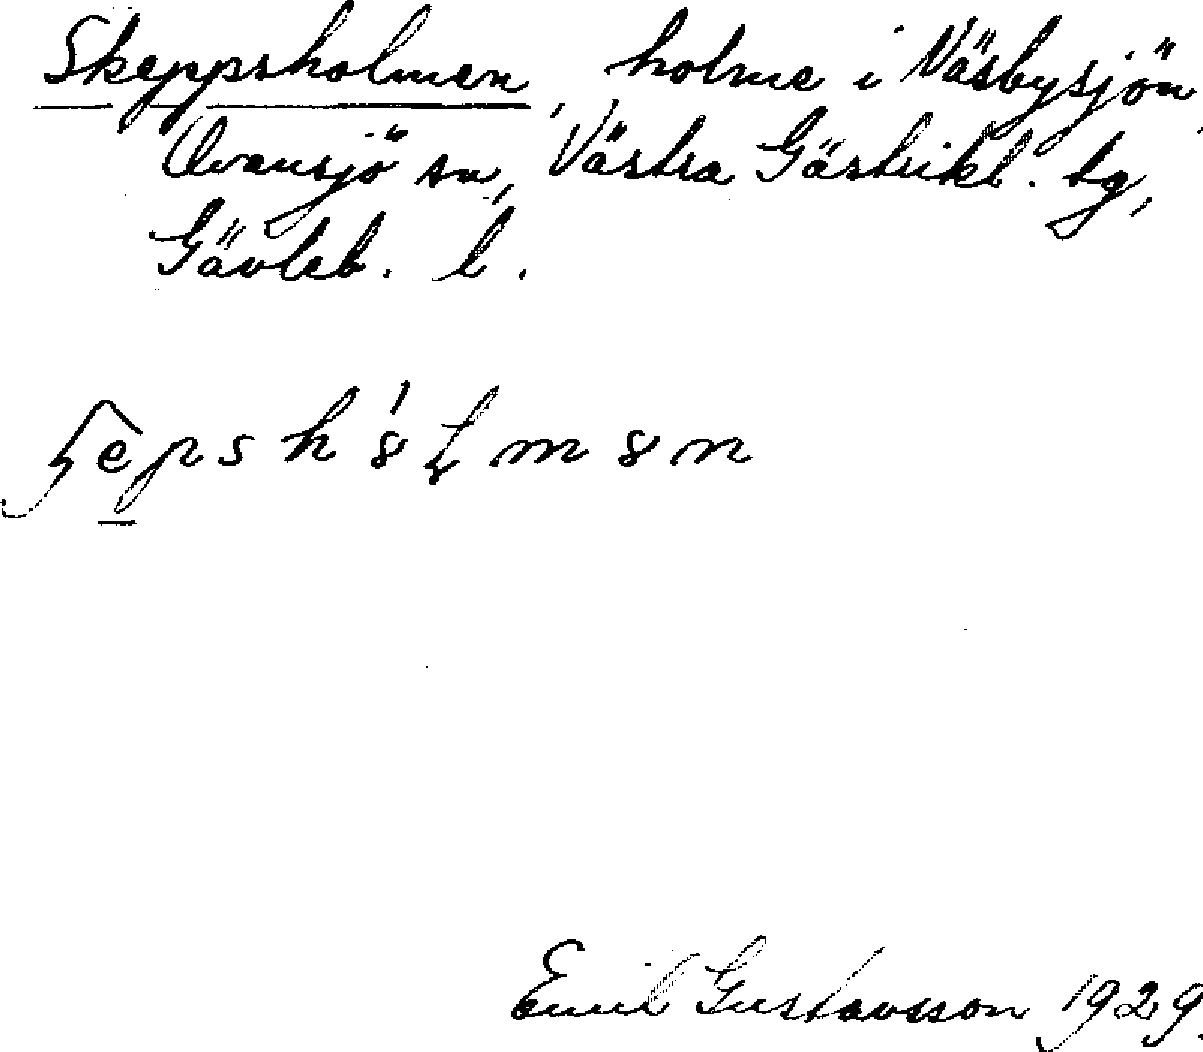 Skeppsholmen, holme i Näsbysjön,
Ovansjö sn, Västra Gästrikl. tg,
Gävleb. l.
Emil Gustavsson 1929.